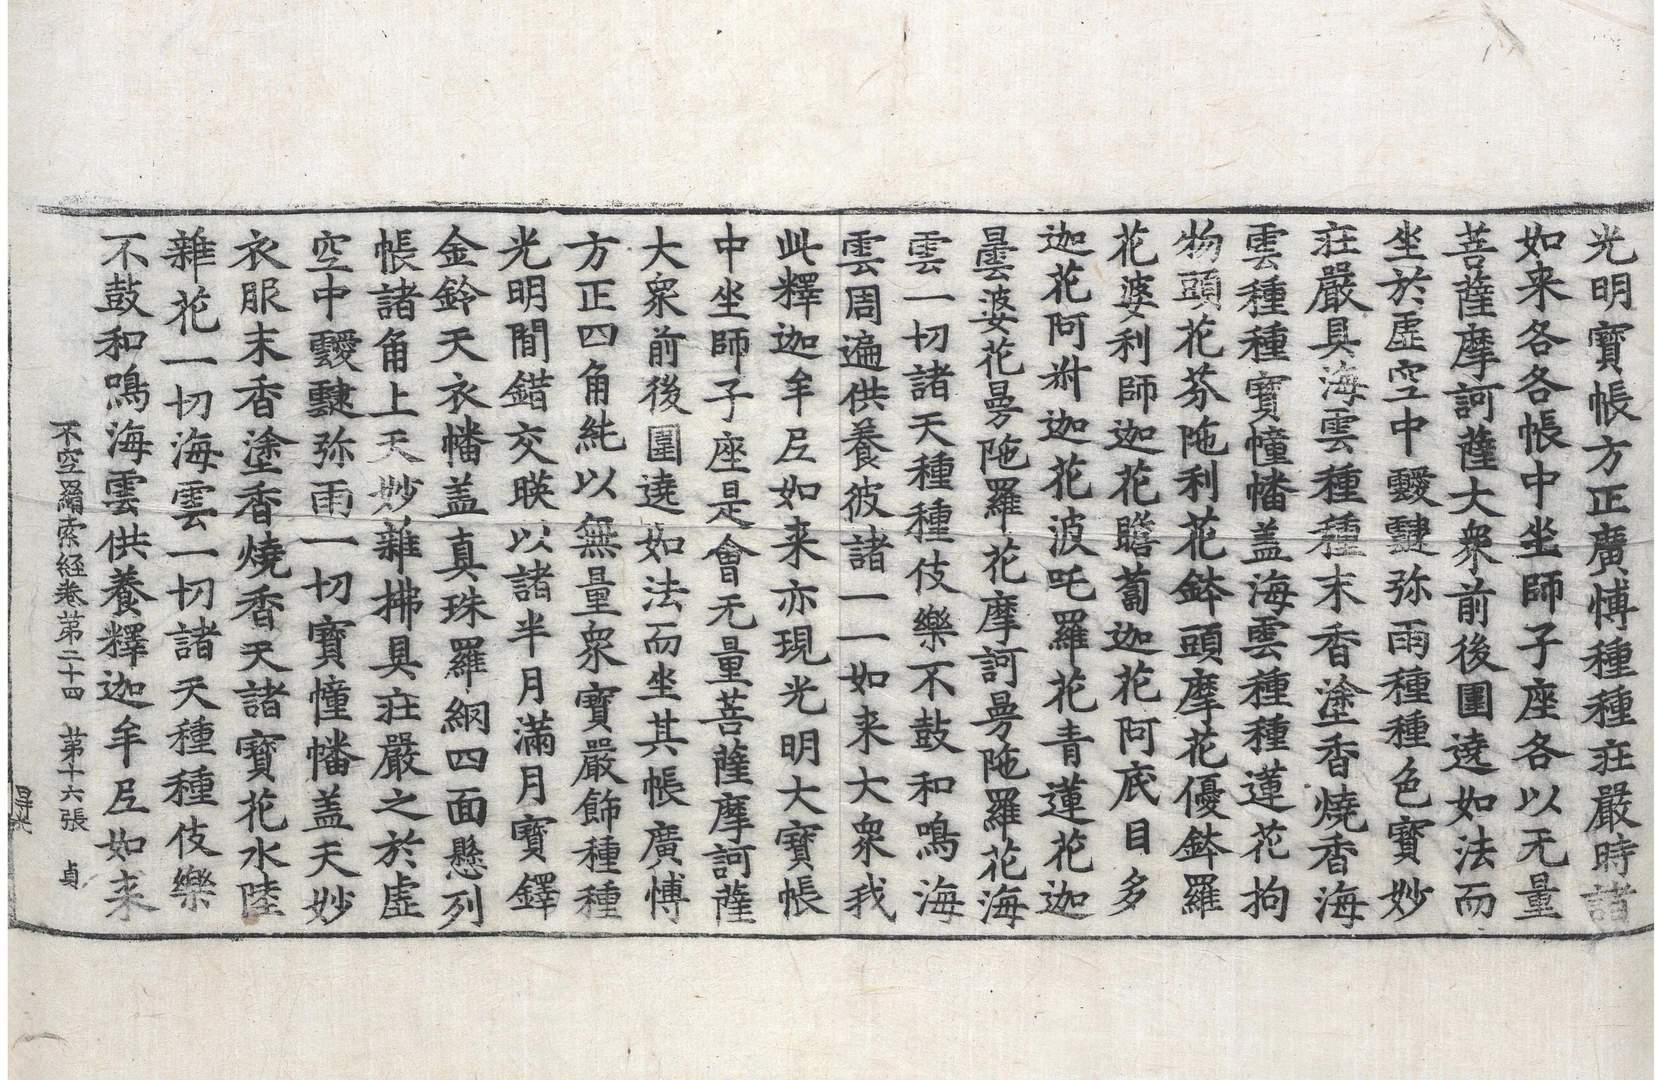 光明寶帳方正廣愽種種莊嚴時諸
如来各各帳中坐師子座各以无量
菩薩摩訶薩大衆前後圍遶如法而
坐於虛空中靉靆弥雨種種色寶妙
莊嚴具海雲種種末香塗香燒香海
雲種種寶幢幡盖海雲種種蓮花拘
物頭花芬陁利花鉢頭摩花優鉢羅
花婆利師迦花瞻蔔迦花阿底目多
迦花阿尌迦花波吒羅花青蓮花迦
曇婆花曼陁羅花摩訶曼陁羅花海
雲一切諸天種種伎樂不鼓和鳴海
雲周遍供養彼諸一一如来大衆我
此釋迦牟尼如来亦現光明大寶帳
中坐師子座是會无量菩薩摩訶薩
大衆前後圍遶如法而坐其帳廣愽
方正四角純以無量衆寶嚴飾種種
光明間錯交暎以諸半月滿月寶鐸
金鈴天衣幡盖真珠羅網四面懸列
帳諸角上天妙雜拂具莊嚴之於虛
空中靉靆弥雨一切寶幢幡盖天妙
衣服末香塗香燒香天諸寶花水陸
雜花一切海雲一切諸天種種伎樂
不鼓和鳴海雲供養釋迦牟尼如来
不空羂索經卷第二十四　第十六張　貞